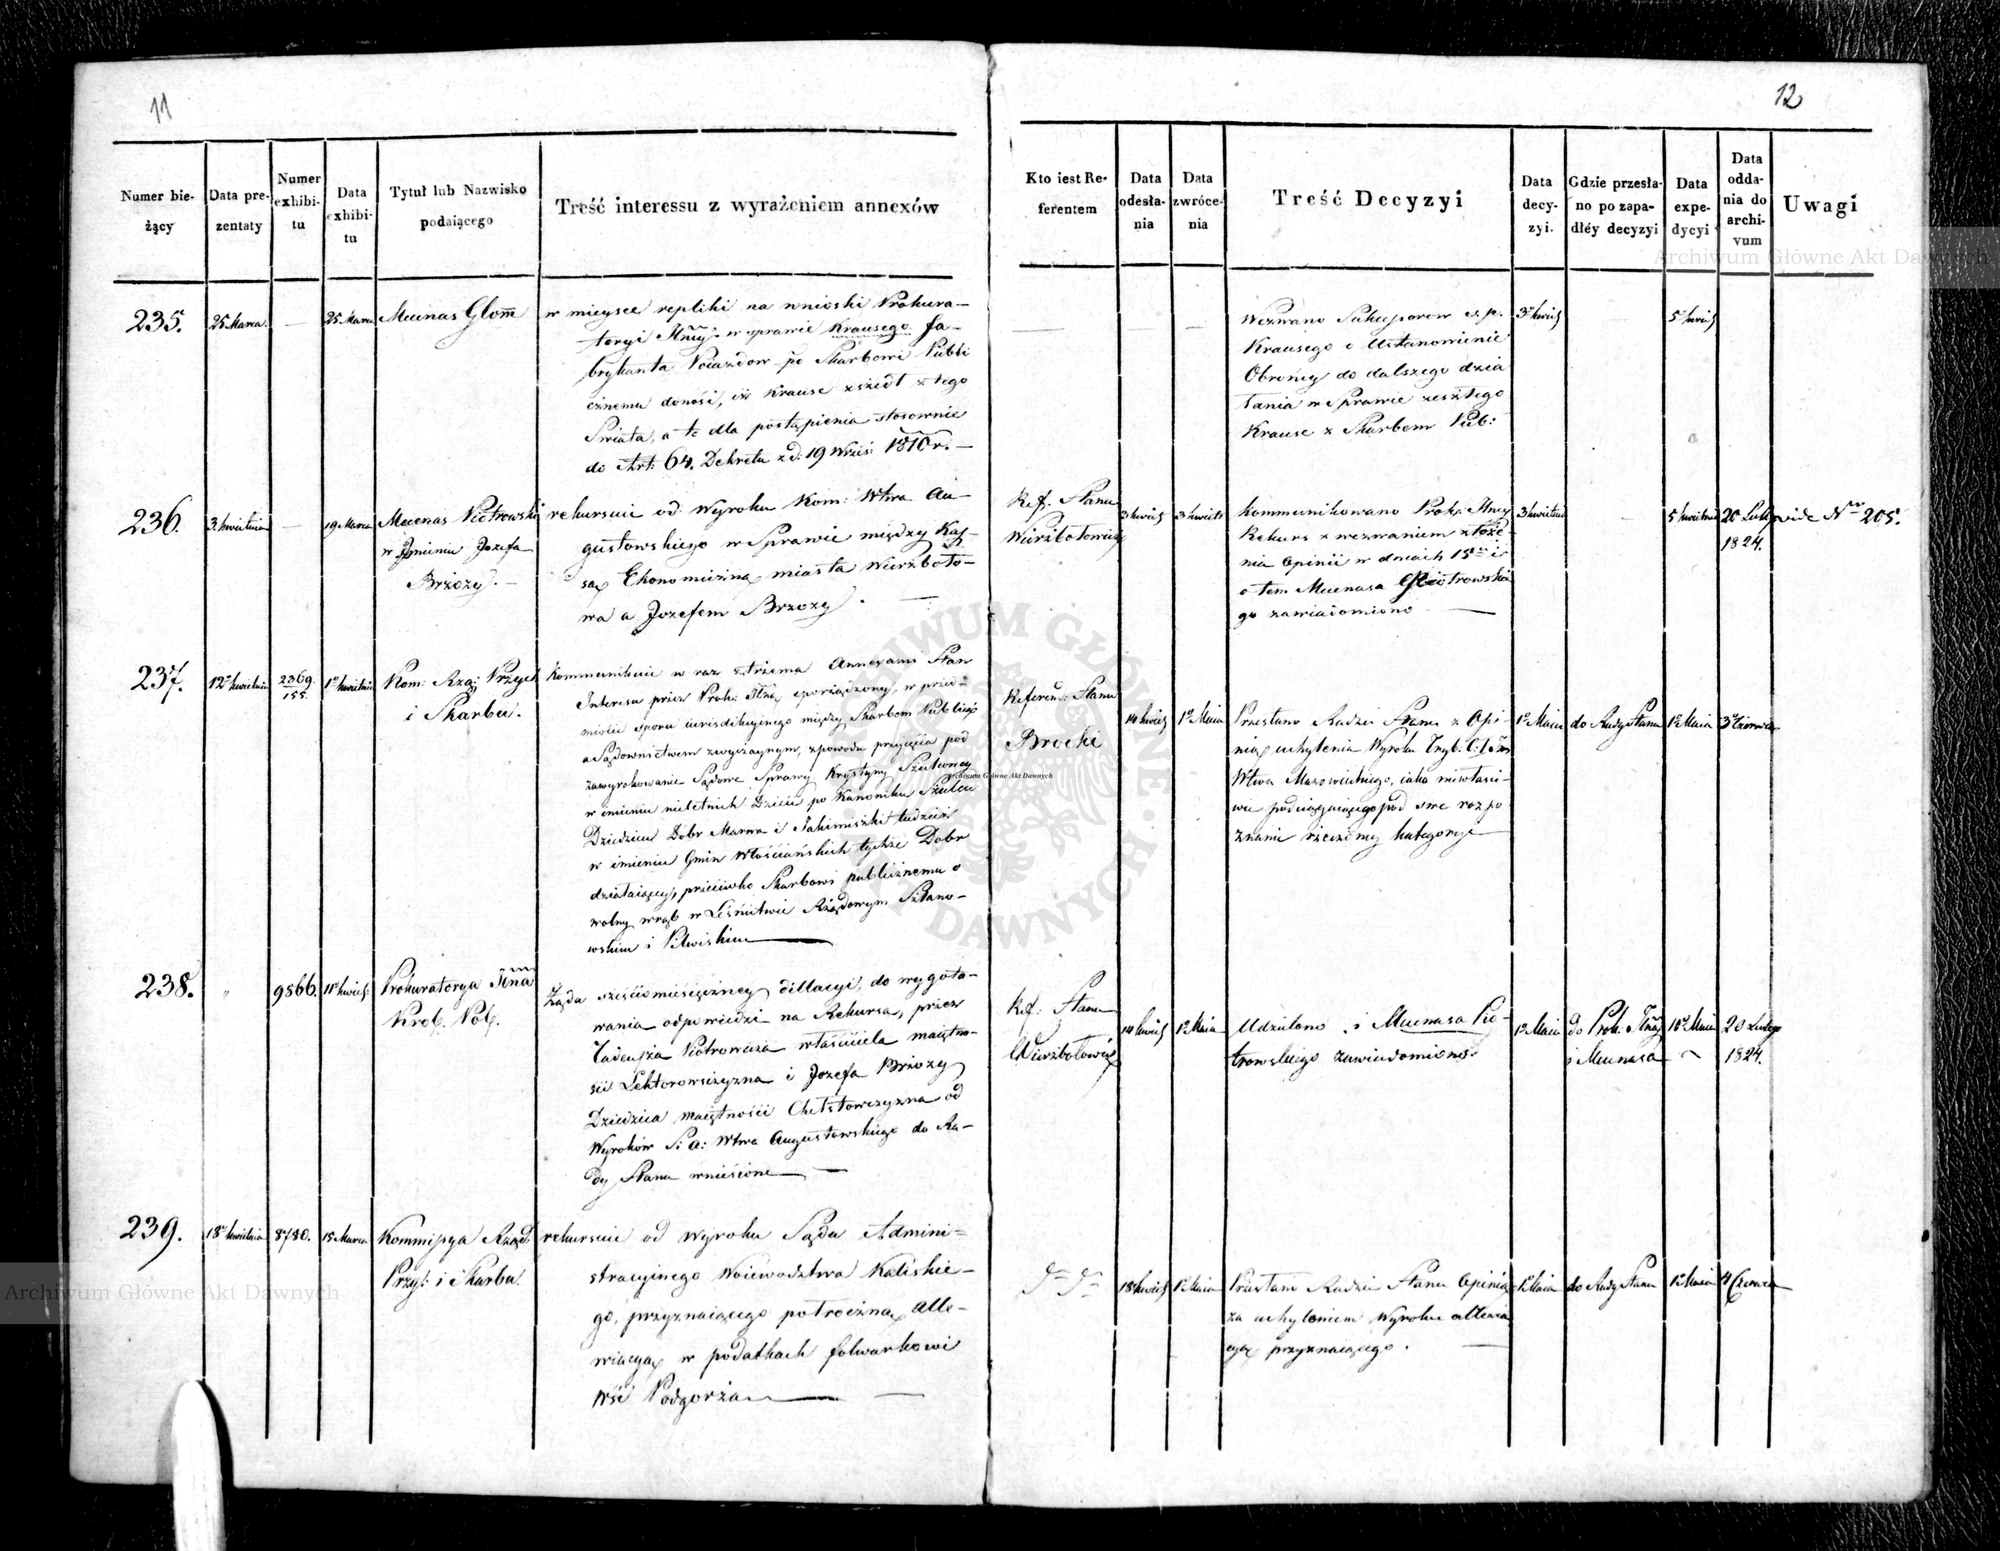 11
12
Numer bieżący
Data prezentaty
Numer exhibitu
Data exhibitu
Tytuł lub Nazwisko podaiącego
Treść interessu z wyrażeniem annexów
Kto iest Referentem
Data odesłania
Data zwrócenia
Treść Decyzyi
Data decyzyi.
Gdzie przesłano po zapadłéy decyzyi
Data expedycyi
Data oddania do archivum
Uwagi
235.
25 Marca.
25 Marca
Mecenas Glom̅
w mieysce repliki na wnioski Prokura–
toryi w sprawie Krausego fa–
brykanta Poiazdow po Skarbowi Publi
cznemu donośi, iż Krause zszedł z tego
Swiata, a to dla postąpienia stosownie
do Art: 64. Dekretu z d: 19 Wrześ: 1810 r. —
Wezwano Sukcessorow ś. p.
Krausego o Ustanowienie
Obrońcy do dalszego dzia
łania w Sprawie zeszłego
Krause z Skarbem Pub:
3 kwiet
5 kwiet
236.
3 kwietnia
19 Marca
Mecenas Piotrowski
w Jmieniu Jozefa
Brzozy. —
rekursuie od Wyroku Kom: Wtwa Au–
gustowskiego w Sprawie między Kas–
są Ekonomiczną miasta Wierzboło–
wa a Jozefem Brzozy. —
Ref: Stanu
Wierzbołowicz
3 kwiet
3 kwiet
kommunikowano Prok:
Rekurs z wezwaniem złoże–
nia Opinii w dniach 15 i
o tem Mecenasa Piotrowskie
go zawiadomiono —
3 kwietnia
5 kwietnia
20 Lut
1824.
vide Nr 205.
237.
12 kwietnia
2369
155.
1 kwietnia
Kom: Rzą: Przych
i Skarbu.
Kommunikuie w raz z trzema Annexami Stan
Interesu przez Prok: sporządzony, w przed–
miocie sporu iurisdikcyinego między Skarbem Public
a Sądownictwem zwyczaynym, z powodu przyięcia pod
zawyrokowanie Sądowe Sprawy Krystyny Szulcowey
w imieniu nieletnich Dzieci po Kanoniku Szulcu
Dziedzicu Dobr Marwa i Jakimiszki tudzież
w imieniu Gmin Włościańskich tychże Dobr
działaiącey, przeciwko Skarbowi publicznemu o
wolny wrąb w Leśnictwie Rządowym Szano–
wskim i Pilwiskim
Referend: Stanu
Brocki
14 kwiet
1 Maia
Przesłano Radzie Stanu z Opi
nią uchylenia Wyroku Tryb: C: I Jns
Wtwa Mazowieckiego, iako niewłaści–
wie podciągaiącego pod swe rozpo
znanie rzeczoney kategoryi
1 Maia
do Rady Stanu
1 Maia
3 Czerwca
238.
"
9566.
11 kwiet
Prokuratorya
Krol. Pol.
Żąda sześciomiesięczney dillacyi, do wygoto–
wania odpowiedzi na Rekursa, przez
Tadeusza Piotrowicza właściciela maiętno–
ści Lektorowszczyzna i Jozefa Brzozy
Dziedzica maiętności Chełstowczyzna od
Wyroków S: A: Wtwa Augustowskiego do Ra–
dy Stanu wniesione —
Ref: Stanu
Wierzbołowicz
14 kwiet
1 Maia
Udzielono i Mecenasa Pio–
trowskiego zawiadomiono
1 Maia
do Prok:
i Mecenasa
10 Maia
20 Lutego
1824.
239.
18 kwietnia
8780.
15 Marca
Kommissya Rząd:
Przy: i Skarbu.
rekursuie od Wyroku Sądu Admini–
stracyinego Woiewodztwa Kaliskie–
go, przyznaiącego potroczną alle–
wiacyą w podatkach folwarkowi
Wśi Podgorza —
18 kwiet
1 Maia
Przesłano Radzie Stanu Opinią
za uchyleniem Wyroku allewia
cyą przyznaiącego. —
1 Maia
do Rady Stanu
1 Maia
4 Czerwca
Archiwum Główne Akt Dawnych
Archiwum Główne Akt Dawnych
Archiwum Główne Akt Dawnych
ARCHIWUM GŁÓWNE AKT DAWNYCH